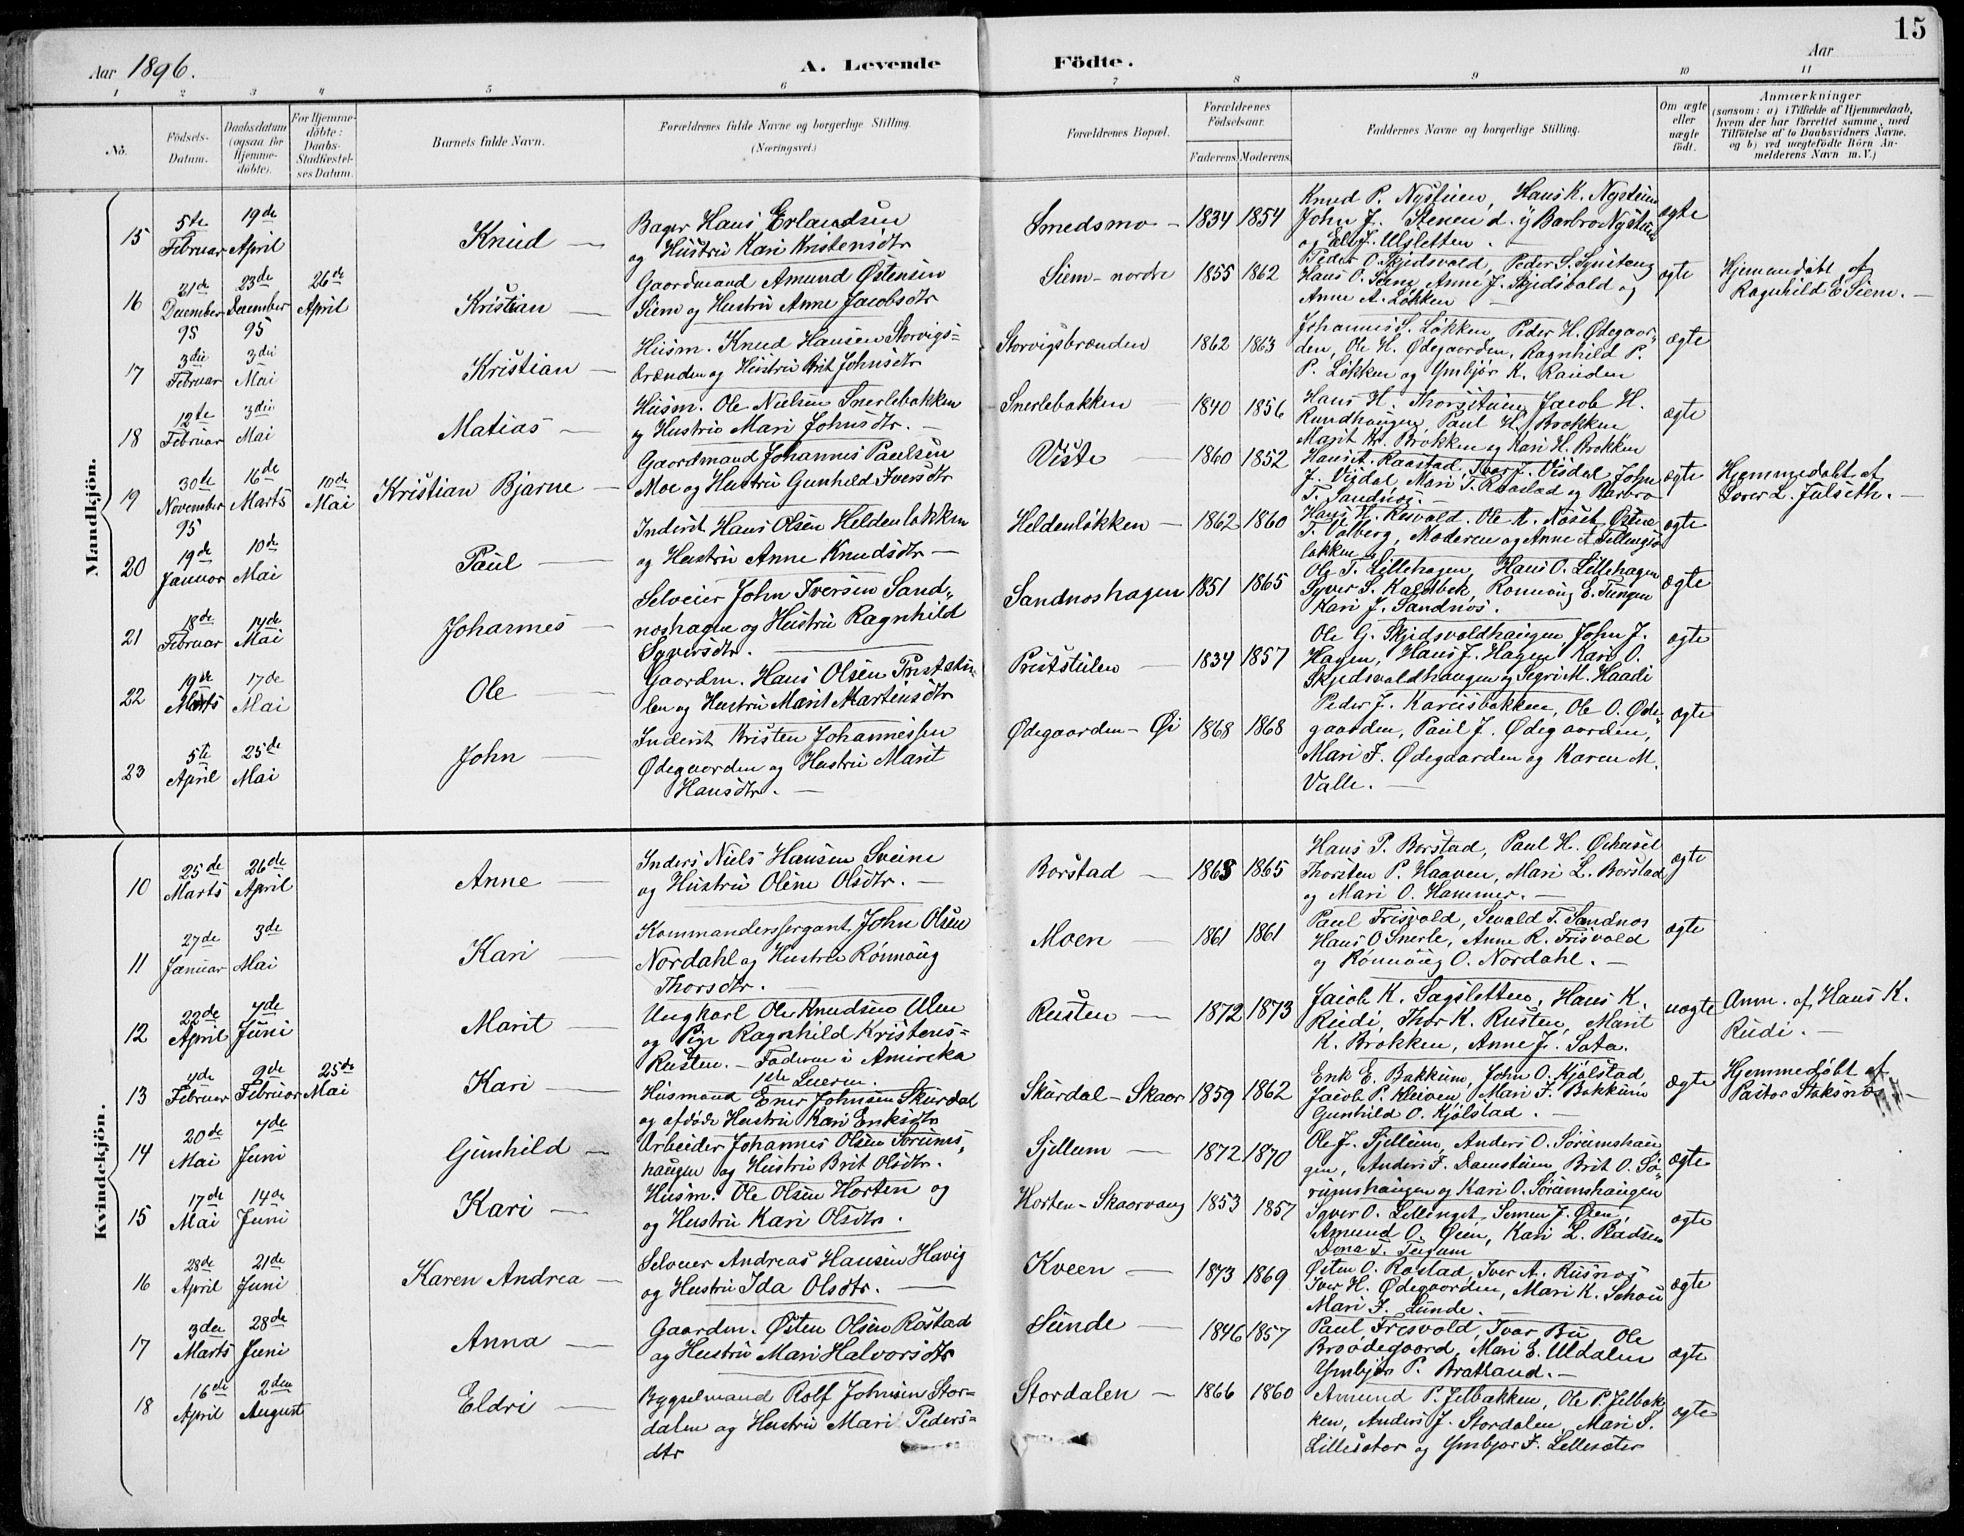 15
Aar 1896. A. Levende Födte. Aar
1 2 3 4 5 6 7 8 9 10 11
No. Födsels-Datum. Daabsdatum (ogsaa for Hjemmedöbte). For Hjemmedöbte: Daabs-Stadfæstelses Datum. Barnets fulde Navn. Forældrenes fulde Navne og borgerlige Stilling. (Næringsvei.) Forældrenes Bopæl. Forældrenes Födselsaar. Faderens. Moderens. Faddernes Navne og borgerlige Stilling. Om ægte eller uægte födt. Anmærkninger (saasom: a) i Tilfælde af Hjemmedaab, hvem der har forrettet samme, med Tilföielse af to Daabsvidners Navne, og b) ved uægtefödte Börn Anmelderens Navn m. V.)
Mandkjön.
15 5te Februar 19de April Knud — Bager Hans Erlandsen
og Hustru Kari Kristensdtr Smedsmo — 1834 1854 Knud P. Nystuen, Hans K. Nystuen
John J. Stenen d. y. Barbro Nystuen
og Eli J. Ulsletten. — ægte
16 21de December 95 23de December 95 26de April Kristian Gaardmand Amund Østensen
Siem og Hustru Anne Jacobsdtr Siem-nordre 1855 1862 Peder O. Skjidsvold, Peder S.
Hans O. Anne J. Skjidsvold og
Anne A. Løkken — ægte Hjemmedøbt af
Ragnhild Ø Siem. —
17 3die Februar 3die Mai Kristian — Husm. Knud Hansen Storvigs-
brænden og Hustru Brit Johnsdtr Storvigsbrænden 1862 1863 Johannes S. Løkken, Peder H. Ødegaar-
den, Ole H. Ødegaarden, Ragnhild P.
P. Løkken og Ymbjør K. Randen ægte
18 12te Februar 3die Mai Matias — Husm. Ole Nielsen Snerlebakken
og Hustru Mari Johnsdtr. — Snerlebakken — 1840 1856 Hans H. Thorsstuen, Jacob H.
Rundhaugen, Paul H. Brokken
Marit Kr. Brokken og Kari H. Brokken ægte
19 30te November 95 16de Marts 10de Mai Kristian Bjarne — Gaardmand Johannes Paulsen
Moe og Hustru Gunhild Iversdtr Viste — 1860 1852 Raastad, Iver J. Visdal, John
J. Visdal, Mari T. Raastad og Barbro
T. Sandnes. — ægte Hjemmedøbt af
L. Julseth. —
20 19de Januar 10de Mai Paul — Inderst Hans Olsen Heldenløkken
og Hustru Anne Knudsdtr — Heldenløkken — 1862 1860 Hans H. Resvold. Ole A. Noset, Østen
T. Valberg, Moderen og Anne A. Tellings-
løkken ægte
21 18de Februar 14de Mai Johannes — Selveier John Iversen Sand-
noshagen og Hustru Ragnhild
Syversdtr. Sandnoshagen 1851 1865 Ole T. Lillehagen, Hans O. Lillehagen
Syver S. Kaldbek, Rønnaug E. Tungen
Kari J. Sandnos. ægte
22 19de Marts 17de Mai Ole — Gaardm. Hans Olsen Prststu-
len og Hustru Marit Martensdtr Præststulen — 1834 1857 Ole G. Skjidsvoldhaugen John J.
Hagen, Hans J. Hagen Kari O.
Skjidsvoldhaugen og Segri M. Haadi ægte
23 5te April 25de Mai John — Inderst Kristen Johannessen
Ødegaarden og Hustru Marit
Hansdtr. — Ødegaarden-Øi 1868 1868 Peder J. Karusbakken, Ole O. Øde-
gaarden, Paul J. Ødegaarden,
Mari F. Ødegaarden og Karen M.
Valle. — ægte
Kvindekjön.
10 25de Marts 26de April Anne — Inders Niels Hansen Sveine
og Hustru Oline Olsdtr. — Borstad — 1863 1865 Hans P. Borstad, Paul H. Øihusel
Thorsten P. Haaven, Mari L. Borstad
og Mari O. Hammer. — ægte
11 27de Januar 3de Mai Kari — Kommandersergant John Olsen
Nordahl og Hustru Rønnaug
Thorsdtr. — Moen — 1861 1861 Paul Frisvold, Sevald T. Sandnos
Hans O Snerle, Anne R. Frisvold
og Rønnaug O. Nordahl. — ægte
12 22de April 7de Juni Marit — Ungkarl Ole Knudsen Ulen
og Pige Ragnhild Kristens-
Rusten. — Faderen i Amireka
1de Leierm. Rusten — 1872 1873 Jacob K. Sagsletten, Hans K.
Rudi, Thor K. Rusten, Marit
K. Brokken, Anne J. Sata. uægte Anm. af Hans K.
Rudi. —
13 4de Februar 9de Februar 25de Mai Kari — Husmand Ener Johnsen Skurdal
og afdøde Hustru Kari Eriksdtr Skurdal-Skaar 1859 1862 Erik E. Bakkum, John O. Kjølstad,
Jacob P. Kleiven, Mari F. Bakkum
Gunhild O. Kjølstad. — ægte Hjemmedøbt af
Pastor Stoksnes —
14 20de Mai 7de Juni Gunhild — Arbeider Johannes Olsen Sørums-
haugen og Hustru Brit Olsdtr. Sjellum — 1872 1870 Ole J. Sjellum, Anders O. Sørumshau
gen, Anders F. Damstuen, Brit O. Sø-
rumshaugen og Kari O. Sørumshaugen ægte
15 17de Mai 14de Juni Kari — Husm. Ole Olsen Horten og
og Hustru Kari Olsdtr. Horten-Skaarvang 1853 1857 Syver O. Lillinget, Semen J. Øien,
Amund O. Øien, Kari L. Pladsen
ægte
16 28de April 21de Juni Karen Andrea — Selveier Andreas Hansen Havig
og Hustru Ida Olsdtr. — Kveen — 1873 1869 Østen O. Rostad, Iver A. Rusnos
Iver H. Ødegaarden, Mari K. Schou
Mari F. Lunde. — ægte
17 3die Marts 28de Juni Anna — Gaardm. Østen Olsen Rostad
og Hustru Mari Halvorsdtr Sunde — 1846 1857 Paul Frisvold, Ivar Bu, Ole
Broødegaard, Mari E. Uldalen
Ymbjør P. Bratland. — ægte
18 16de April 2den August Eldri — Byggelmand Rolf Johnsen Stor-
dalen og Hustru Mari Peders-
dtr Stordalen — 1866 1860 Amund P. Jelbakken, Ole P. Jelbak
ken, Anders J. Stordalen, Mari S.
Lillesæter og Ymbjør F. Lillesæter ægte